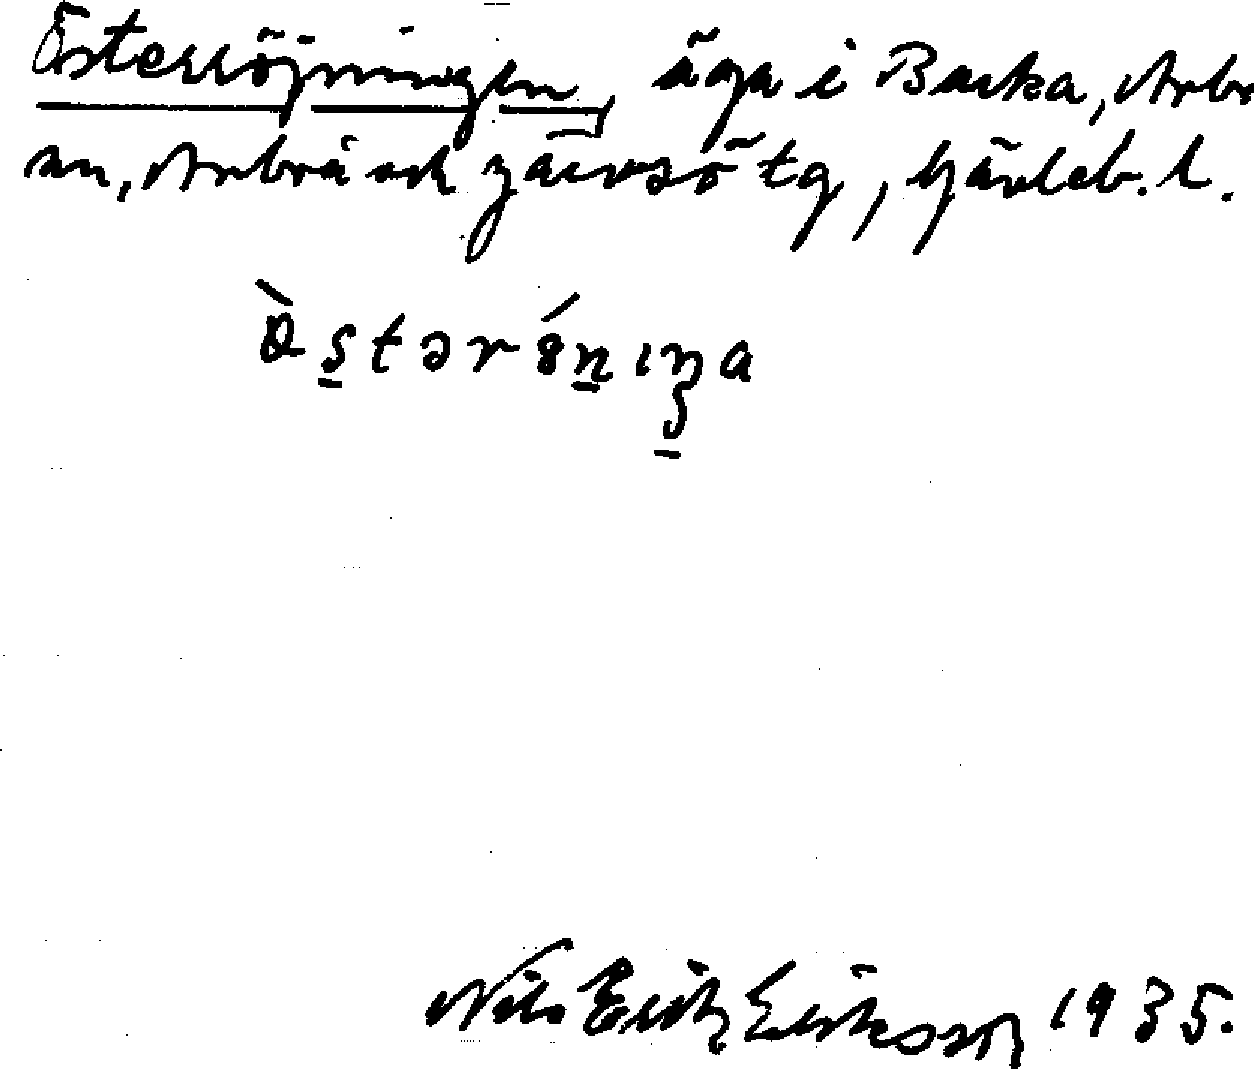 Österröjningen, äga i Backa, Arbrå
sn, Arbrå och Järvsö tg, Gävleb. l.
Nils Erik Eriksson 1935.